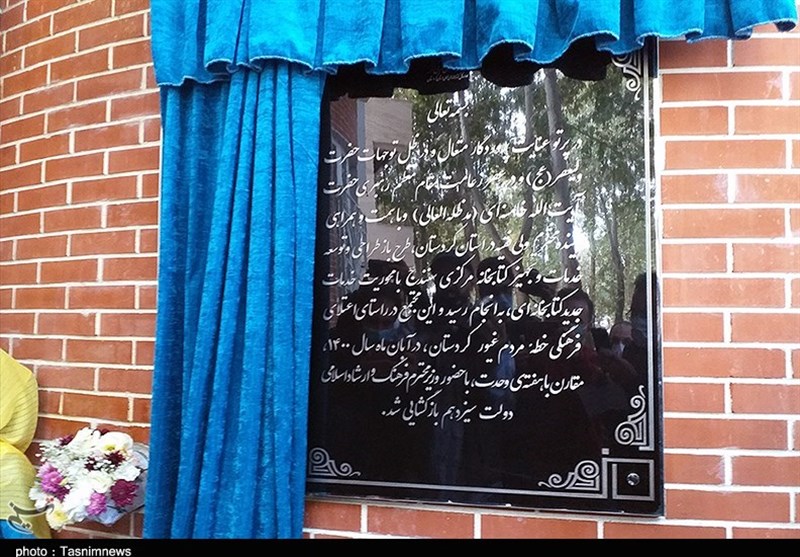 بسمه تعالی
در پرتو عنایت پروردگار متعال و در ظل توجهات حضرت
ولیعصر (عج) و در عصر زعامت مقام معظم رهبری حضرت
آیت الله خامنه ای (مد ظله العالی) و با همت و همراهی
نماینده محترم ولی فقیه در استان کردستان، طرح باز طراحی و توسعه
خدمات و تجهیز کتابخانه مرکزی سنندج با محوریت خدمات
جدید کتابخانه ای، به انجام رسید و این مجتمع در راستای اعتلای
فرهنگی خطهٔ مردم غیور کردستان، در آبان ماه سال ۱۴۰۰،
مقارن با هفته ی وحدت، با حضور وزیر محترم فرهنگ و ارشاد اسلامی
دولت سیزدهم بازگشایی شد.
photo : Tasnimnews